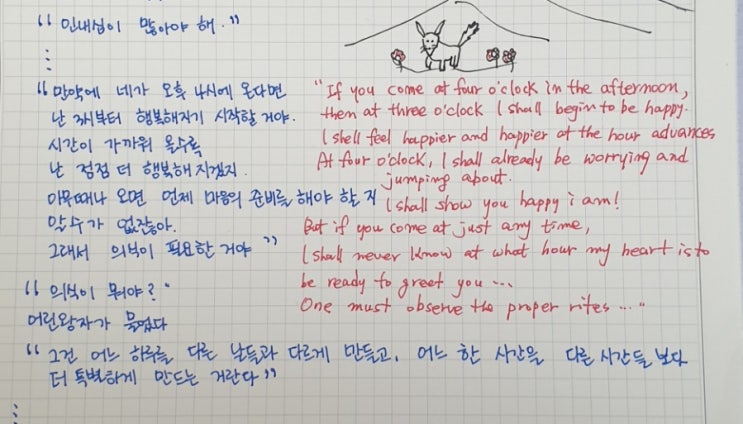 “ 인내심이 많아야 해. ”
“ 만약에 네가 오후 4시에 온다면
난 3시부터 행복해지기 시작할 거야.
시간이 가까워 올수록
난 점점 더 행복해 지겠지.
아무때나 오면 언제 마음의 준비를 해야 할 지
알 수가 없잖아.
그래서 의식이 필요한 거야 ”
"If you come at four o'clock in the afternoon,
then at three o'clock I shall begin to be happy.
I shell feel happier and happier at the hour advances
At four o'clock, I shall already be worrying and
jumping about.
I shall show you happy i am!
But if you come at just any time,
I shall never know at what hour my heart is to
be ready to greet you ...
One must observe the proper rites ..."
“ 의식이 뭐야? ”
어린왕자가 물었다
“ 그건 어느 하루를 다른 날들과 다르게 만들고, 어느 한 시간을 다른 시간들 보다
더 특별하게 만드는 거란다 ”